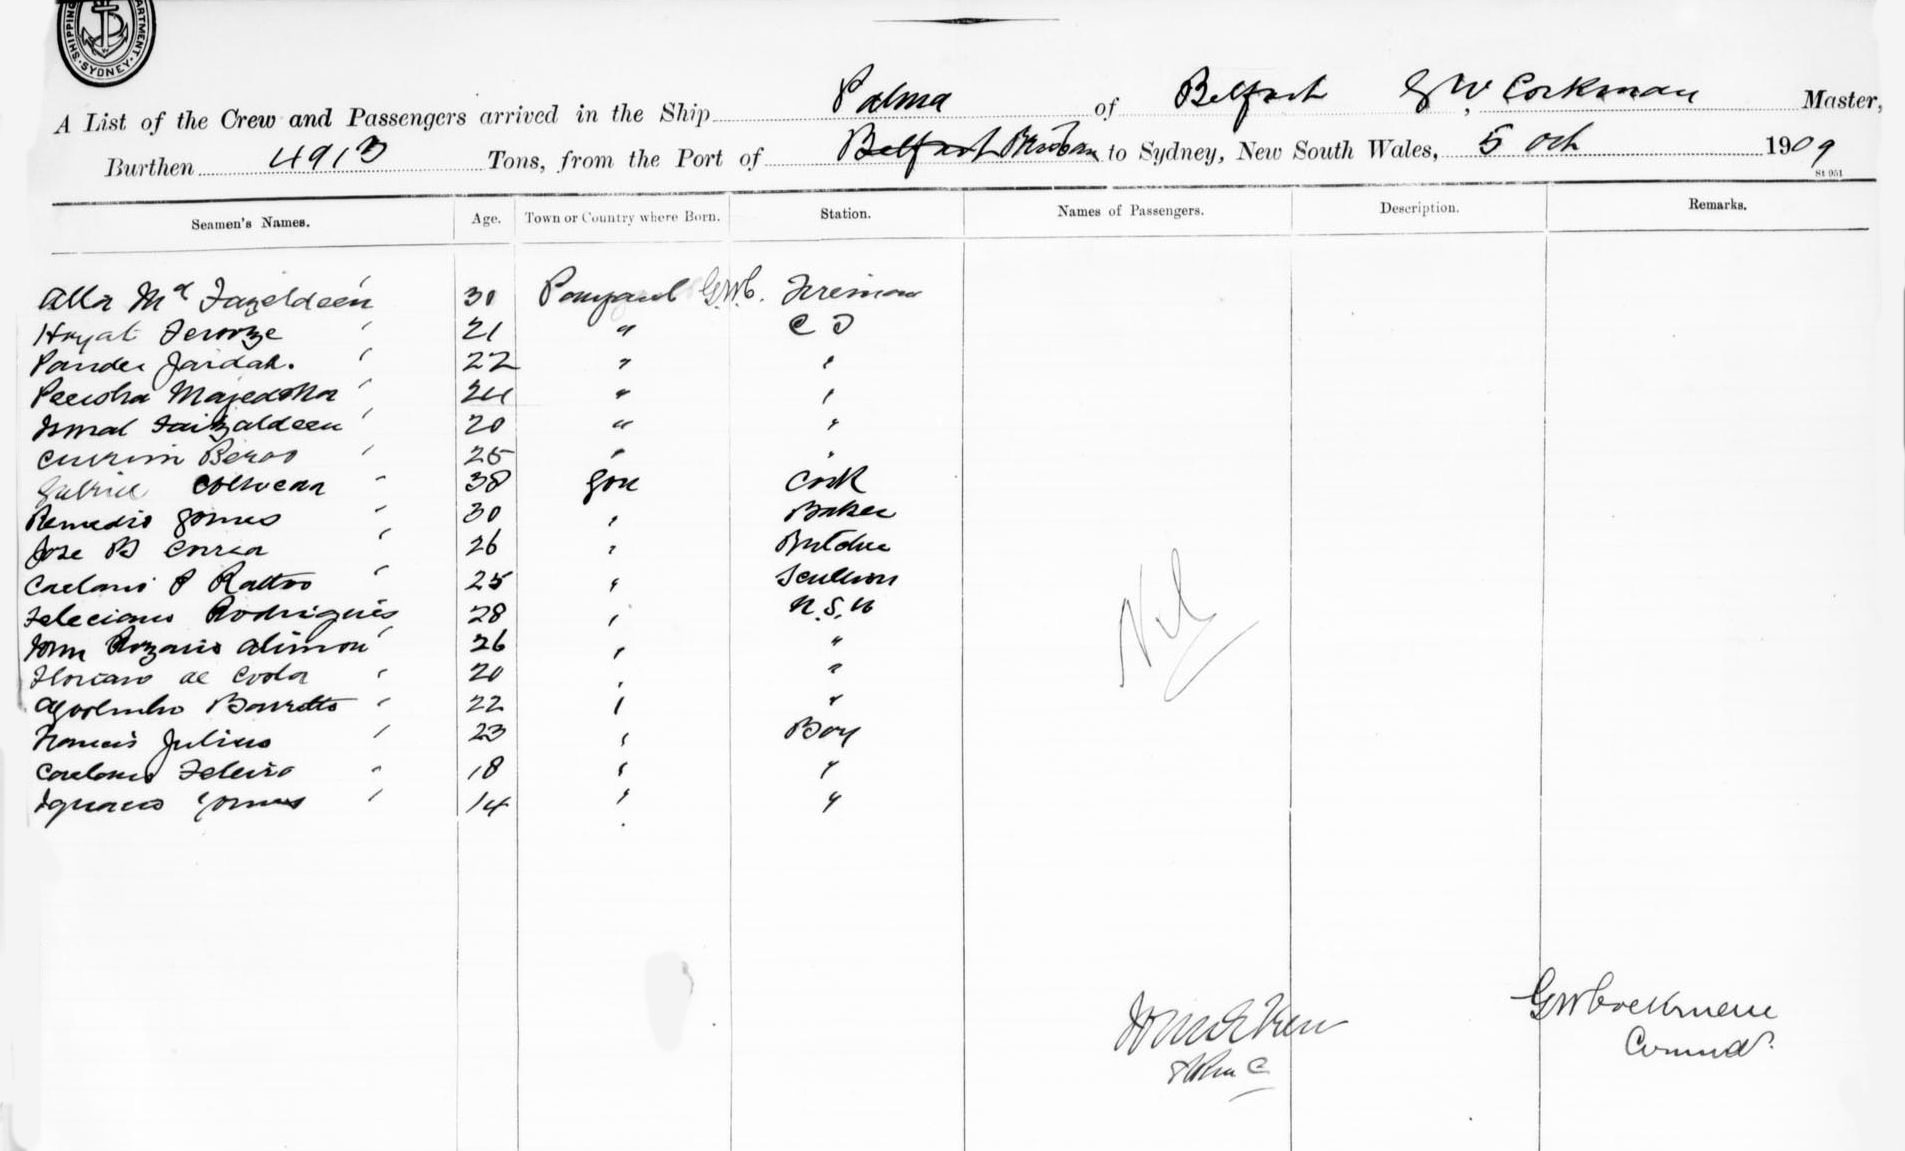 SHIPPING DEPARTMENT SYDNEY
A List of the Crew and Passengers arrived in the Ship Palma of Belfast, G W Cockman Master,
Burthen 4913 Tons, from the Port of Belfast Brisbane to Sydney, New South Wales, 5 Oct 1909
St 951
Seamen's Names. Age. Town or Country where Born. Station. Names of Passengers. Description. Remarks.
Alla Md Fazeldeen 30 G.W.C. Fireman
Hayat Feroze 21 " C T
Pander Jaidah. 22 " "
Majedkhan 24 " "
Ismal Faizaldeen 20 " "
Currim 25 " "
Gabriel 38 Goa Cook
Remedio Gomes 30 " Baker
Jose B Correa 26 " Butcher
Caetano P Rattos 25 " Scullion
Feleciano Rodrigues 28 " G.S.
John Rozario 26 " "
Floriano de Costa 20 " "
Agostinho Barretto 22 " "
Francis Julius 23 " Boy
Caetano 18 " "
Ignacio Gomes 14 " "
Nil
GW Cockman
Commdr.